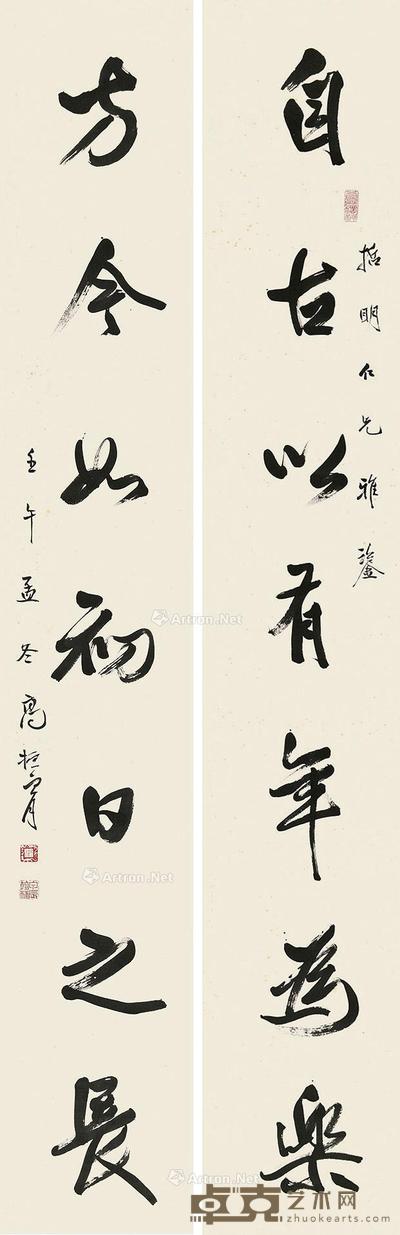 自古以有年為樂
哲明仁兄雅鑒
方今如初日之長
壬午孟冬高振霄
Artron.Net
Artron.Net
Artron.Net
Artron.Net
卓克艺术网
zhuokearts.com